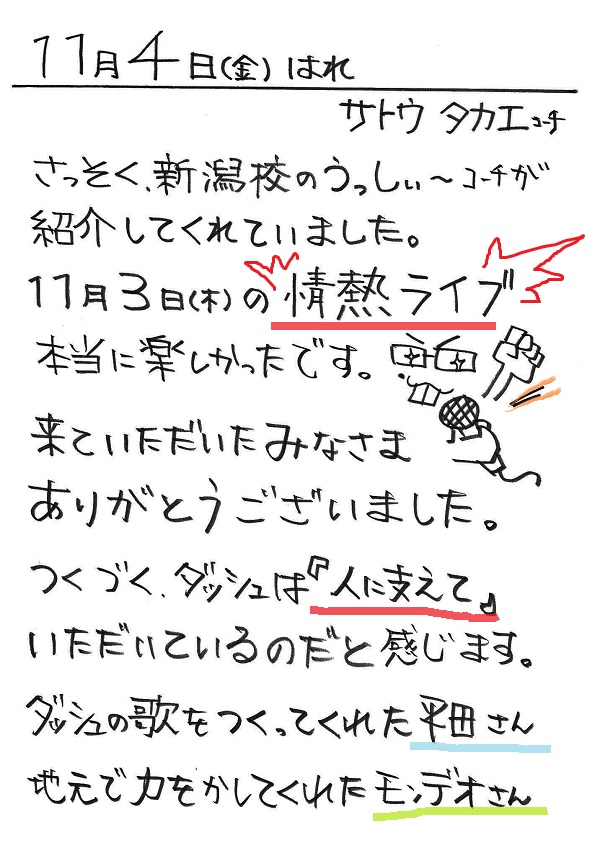 11月4日(金) はれ
サトウ タカエコーチ
さっそく、新潟校のうっしぃ～コーチが
紹介してくれていました。
11月3日(木)の情熱ライブ
本当に楽しかったです。
来ていただいたみなさま
ありがとうございました。
つくづく、ダッシュは『人に支えて』
いただいているのだと感じます。
ダッシュの歌をつくってくれた平田さん
地元で力をかしてくれたモンデオさん